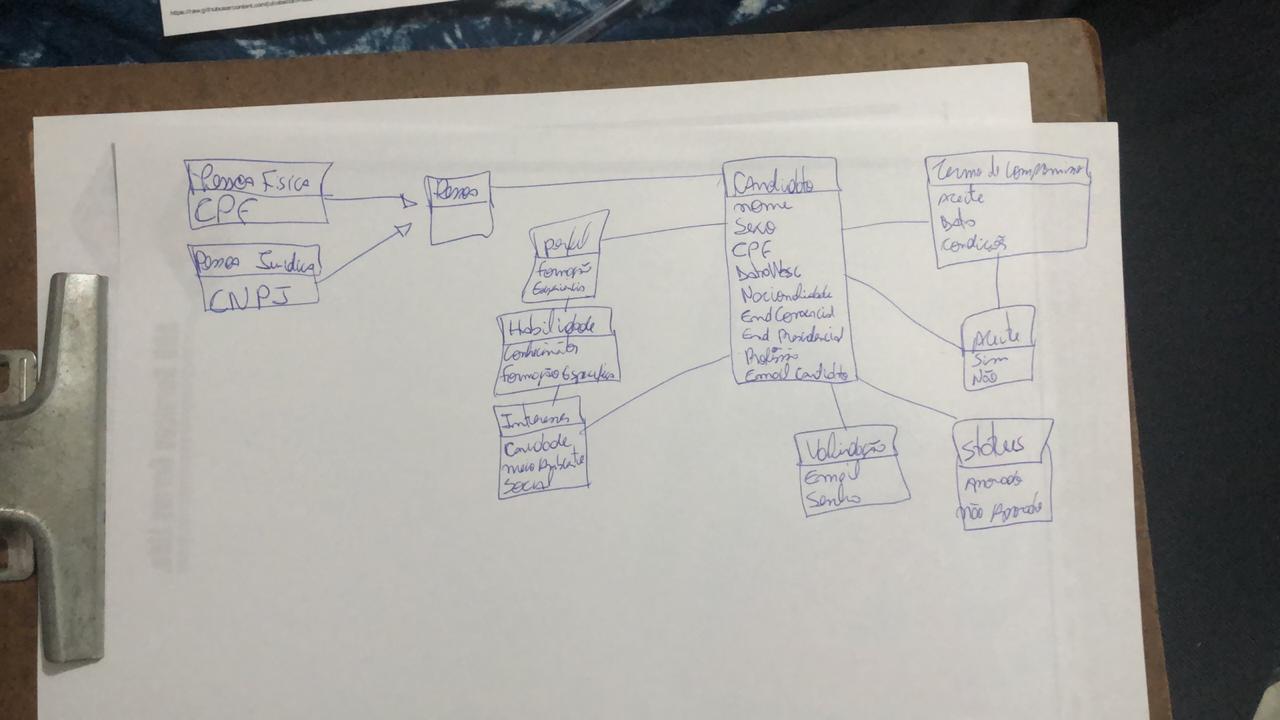 Pessoa Física
CPF
Pessoa Jurídica
CNPJ
Pessoa
Perfil
Formação
Habilidade
Conhecimentos
Formação Específica
Interesses
Caridade
Meio Ambiente
Social
Candidato
nome
Sexo
CPF
DataNasc
Nacionalidade
End Comercial
End Residencial
Profissão
Email Candidato
Termo de Compromisso
Aceite
Data
Condição
Aceite
Sim
Não
Validação
Email
Senha
Status
Aprovado
não Aprovado